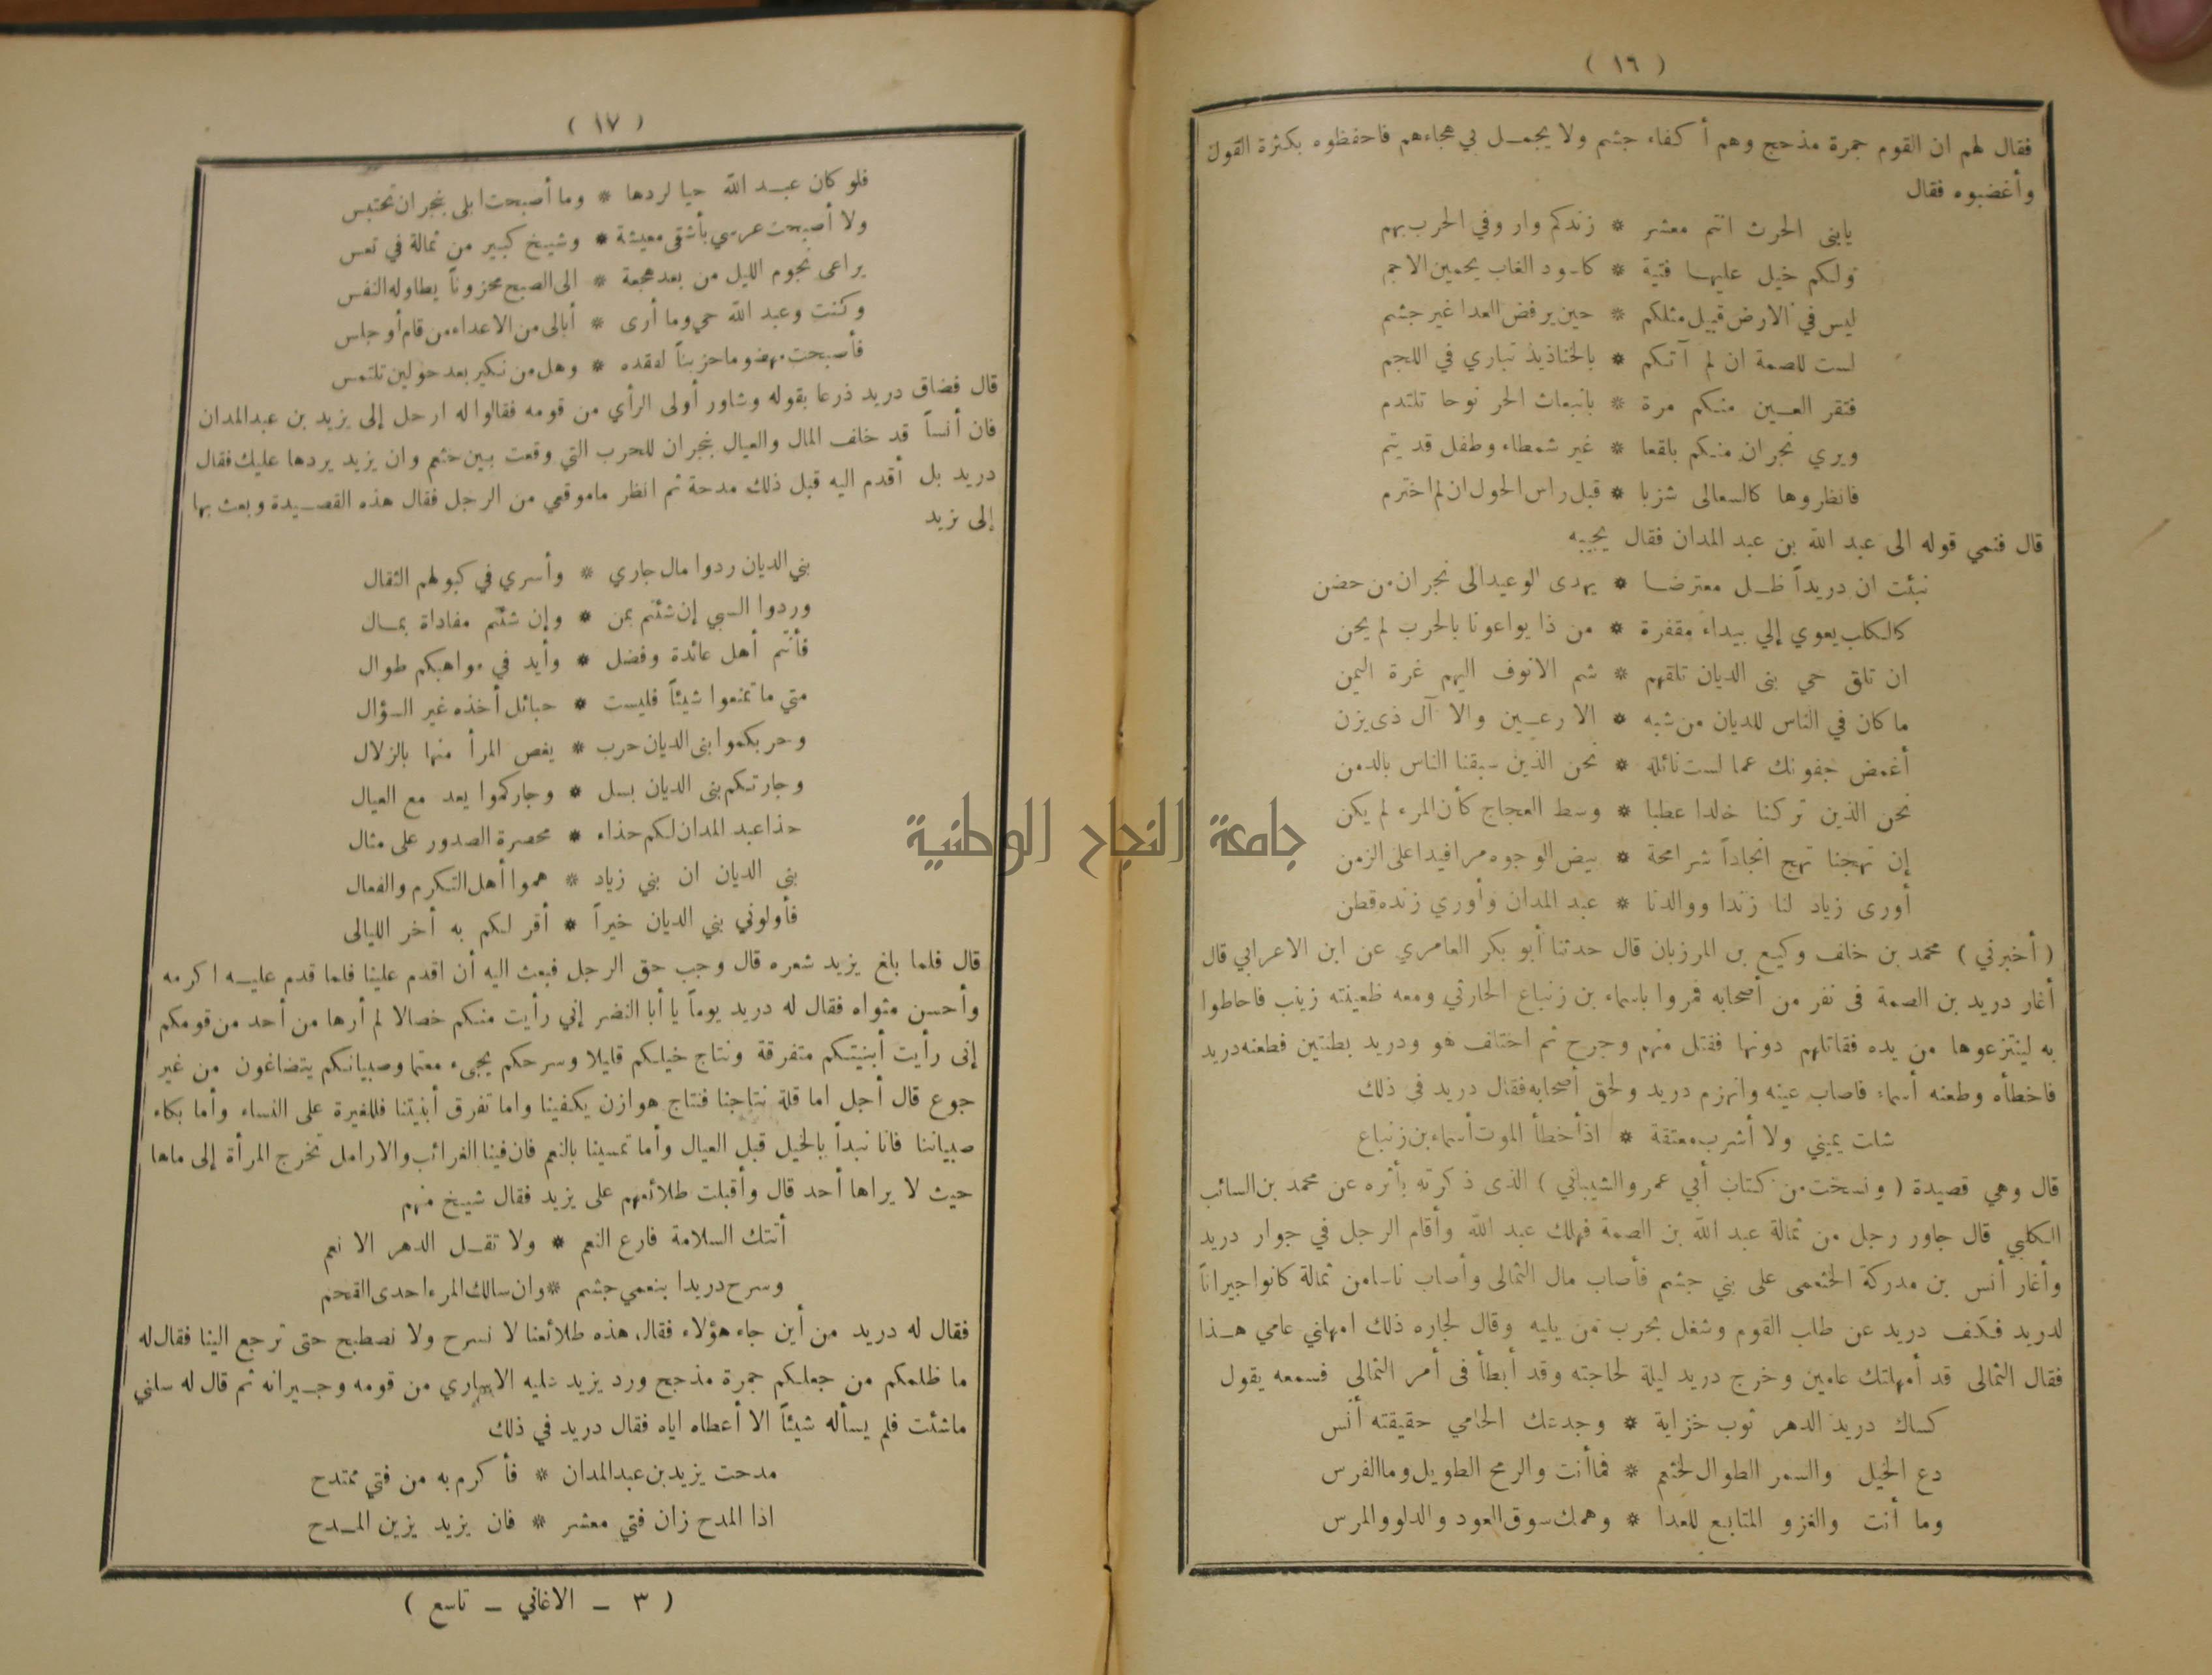 ( ١٦ )
فقال لهم ان القوم جمرة مذحج وهم أكفاء جشم ولا يجمل بي هجاءهم فاحفظوه بكثرة القول
وأغضبوه فقال
يابنى الحرث انتم معشر * زندكم وار وفي الحرب بهم
ولكم خيل عليها فتية * كاسود الغاب يحمين الاجم
ليس في الارض قبيل مثلكم * حين يرفض العدا غير جشم
لست للصمة ان لم آتكم * بالخناذيذ تبارى في اللجم
فتقر العين منكم مرة * بانبعاث الحر نوحا تلتدم
ويرى نجران منكم بلقعا * غير شمطاء وطفل قد يتم
فانظروها كالسعالى شزبا * قبل راس الحول ان لم اخترم
قال فنمي قوله الى عبد الله بن عبد المدان فقال يجيبه
نبئت ان دريداً ظل معترضا * يهدى الوعيد الى نجران من حضن
كالكلب يعوي إلي بيداء مقفرة * من ذا يواعدنا بالحرب لم يحن
ان تلق حي بنى الديان تلقهم * شم الانوف اليهم غرة اليمن
ما كان في الناس للديان من شبه * الا رعين والا آل ذى يزن
أغمض جفونك عما لست نائله * نحن الذين سبقنا الناس بالدمن
نحن الذين تركنا خالدا عطبا * وسط العجاج كأن المرء لم يكن
إن تهجنا تهج انجاداً شرامحة * بيض الوجوه مرافيدا على الزمن
أورى زياد لنا زندا ووالدنا * عبد المدان وأوري زنده قطن
( أخبرني ) محمد بن خلف وكيع بن المرزبان قال حدثنا أبو بكر العامري عن ابن الاعرابي قال
أغار دريد بن الصمة في نفر من أصحابه فمروا باسماء بن زنباع الحارثي ومعه ظعينته زينب فاحاطوا
به لينتزعوها من يده فقاتلهم دونها فقتل منهم وجرح ثم اختلف هو ودريد بطنتين فطعنه دريد
فاخطأه وطعنه أسماء فاصاب عينه وانهزم دريد ولحق أصحابه فقال دريد في ذلك
شلت يميني ولا أشرب معتقة * اذ أخطأ الموت أسماء بن زنباع
قال وهي قصيدة ( ونسخت من كتاب أبي عمرو الشيباني ) الذى ذكرته بأثره عن محمد بن السائب
الكلبي قال جاور رجل من ثمالة عبد الله بن الصمة فهلك عبد الله وأقام الرجل في جوار دريد
وأغار أنس بن مدركة الخثعمى على بني جشم فأصاب مال الثمالى وأصاب ناسا من ثمالة كانوا جيراناً
لدريد فكف دريد عن طلب القوم وشغل بحرب من يليه وقال لجاره ذلك امهلني عامي هذا
فقال الثمالى قد أمهلتك عامين وخرج دريد ليلة لحاجته وقد أبطأ في أمر الثمالي فسمعه يقول
كساك دريد الدهر ثوب خزاية * وجدعك الحامي حقيقته أنس
دع الخيل والسمر الطوال لخثعم * فما أنت والرمح الطويل وما الفرس
وما أنت والغزو المتابع للعدا * وهمك سوق العود والدلو والمرس
( ١٧ )
فلو كان عبد الله حيا لردها * وما أصبحت ابلى بنجران تحتبس
ولا أصبحت عرسي بأشقى معيشة * وشيخ كبير من ثمالة في تعس
يراعى نجوم الليل من بعد هجعة * الى الصبح محزوناً يطاوله النفس
وكنت وعبد الله حي وما أرى * أبالى من الاعداء من قام أو جلس
فأصبحت مهضوما حزيناً لفقده * وهل من نكير بعد حولين تلتمس
قال فضاق دريد ذرعا بقوله وشاور أولى الرأي من قومه فقالوا له ارحل إلى يزيد بن عبد المدان
فان أنساً قد خلف المال والعيال بنجران للحرب التي وقعت بين خثعم وان يزيد يردها عليك فقال
دريد بل أقدم اليه قبل ذلك مدحة ثم انظر ماموقعي من الرجل فقال هذه القصيدة وبعث بها
إلى يزيد
بني الديان ردوا مال جاري * وأسري في كبولهم الثقال
وردوا السبي إن شئتم بمن * وإن شئتم مفاداة بمال
فأنتم أهل عائدة وفضل * وأيد في مواهبكم طوال
متي ما تمنعوا شيئاً فليست * حبائل أخذه غير السؤال
وحربكموا بنى الديان حرب * يغص المرأ منها بالزلال
وجارتكم بنى الديان بسل * وجاركموا يعد مع العيال
حذا عبد المدان لكم حذاء * محصرة الصدور على مثال
بنى الديان ان بني زياد * هموا أهل التكرم والفعال
فأولوني بني الديان خيراً * أقر لكم به أخر الليالى
قال فلما بلغ يزيد شعره قال وجب حق الرجل فبعث اليه أن اقدم علينا فلما قدم عليه اكرمه
وأحسن مثواه فقال له دريد يوماً يا أبا النضر إني رأيت منكم خصالا لم أرها من أحد من قومكم
إنى رأيت أبنيتكم متفرقة ونتاج خيلكم قليلا وسرحكم يجىء معتما وصبيانكم يتضاغون من غير
جوع قال أجل اما قلة نتاجنا فنتاج هوازن يكفينا واما تفرق أبنيتنا فللغيرة على النساء وأما بكاء
صبياننا فانا نبدأ بالخيل قبل العيال وأما تمسينا بالنعم فان فينا الغرائب والارامل تخرج المرأة إلى مالها
حيث لا يراها أحد قال وأقبلت طلائعهم على يزيد فقال شيخ منهم
أتتك السلامة فارع النعم * ولا تقل الدهر الا نعم
وسرح دريدا بنعمي جشم * وان سالك المرء احدى القحم
فقال له دريد من أين جاء هؤلاء فقال هذه طلائعنا لا نسرح ولا نصطبح حتى ترجع الينا فقال له
ما ظلمكم من جعلكم جمرة مذحج ورد يزيد عليه الاسارى من قومه وجيرانه ثم قال له سلني
ماشئت فلم يسأله شيئاً الا أعطاه اياه فقال دريد في ذلك
مدحت يزيد بن عبد المدان * فأكرم به من فتي ممتدح
اذا المدح زان فتي معشر * فان يزيد يزين المدح
( ٣ ــ الاغاني ــ تاسع )
جامعة النجاح الوطنية